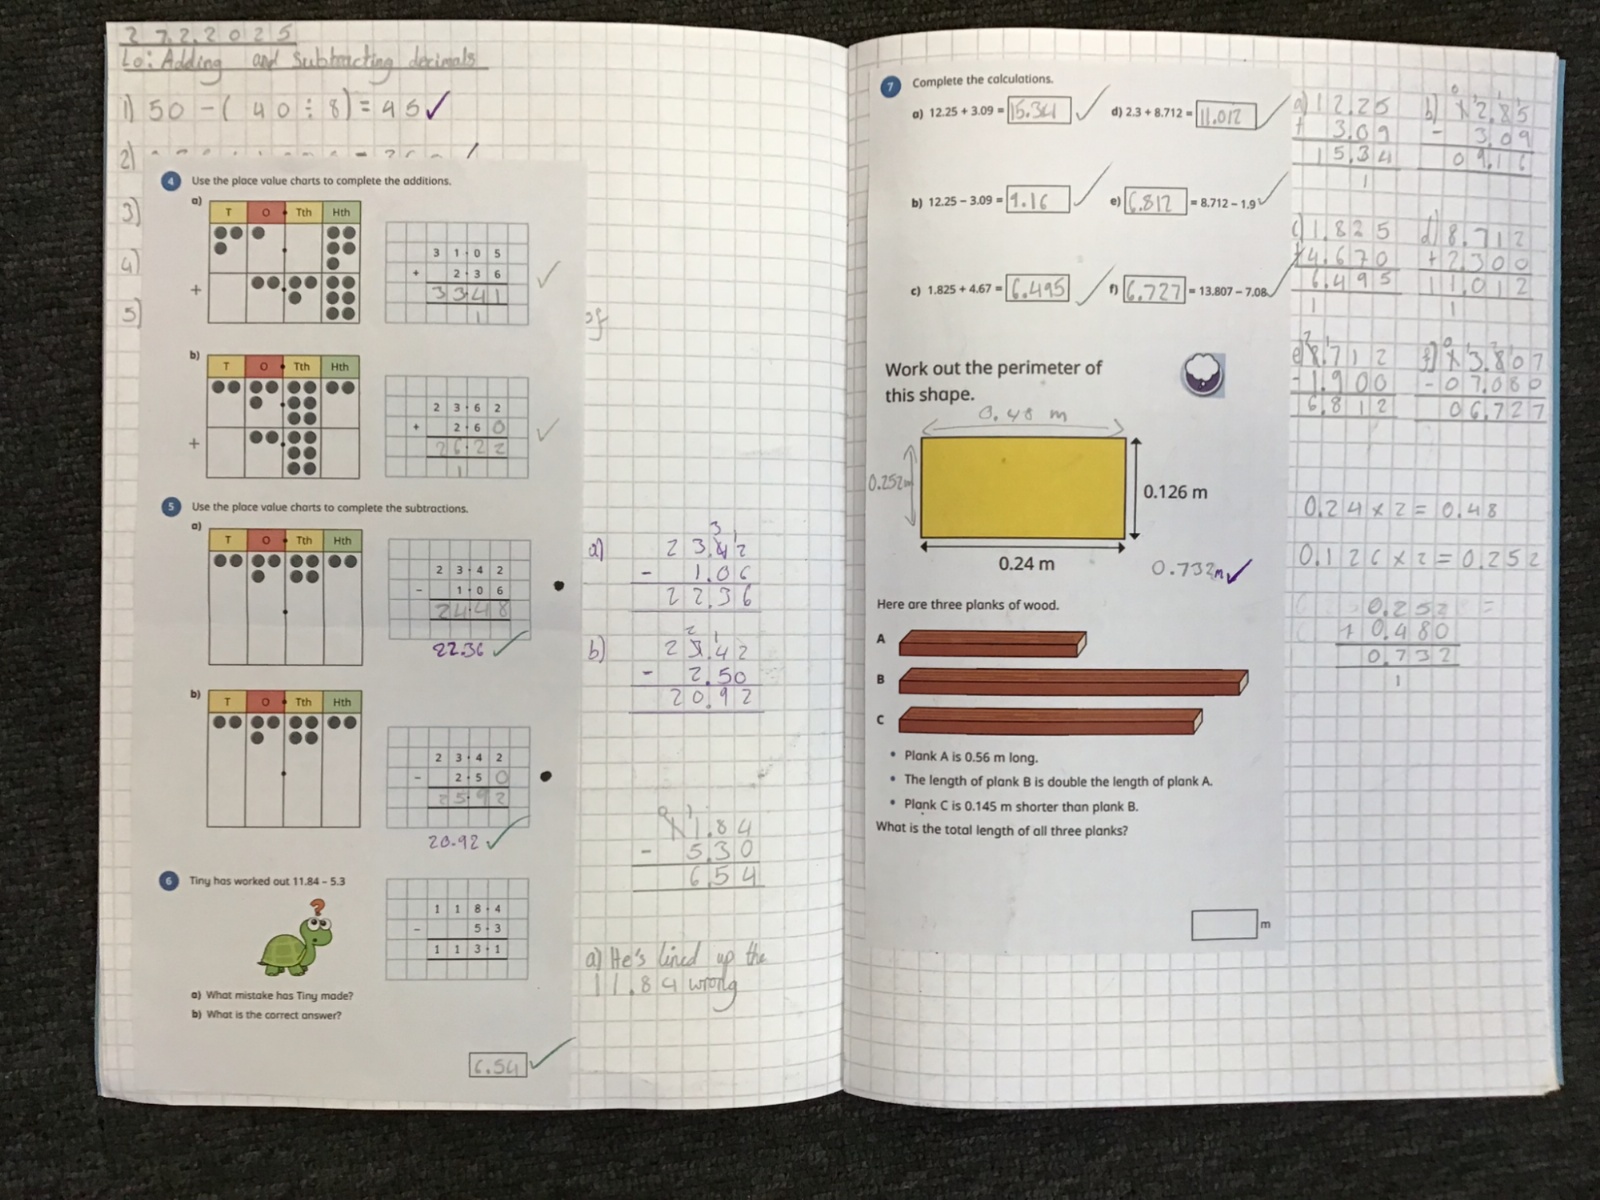 27.2.2025
Lo: Adding and Subtracting decimals
1) 50 - (40 ÷ 8) = 45 ✓
2)
3)
4)
5)
of
4 Use the place value charts to complete the additions.
a)
T O Tth Hth
+
3 1 · 0 5
+ 2 · 3 6
3 3 · 4 1
1
b)
T O Tth Hth
+
2 3 · 6 2
+ 2 · 6 0
2 6 · 2 2
1
5 Use the place value charts to complete the subtractions.
a)
T O Tth Hth
2 3 · 4 2
- 1 · 0 6
2 4 · 4 8
22.36 ✓
b)
T O Tth Hth
2 3 · 4 2
- 2 · 5 0
2 5 · 9 2
20.92 ✓
6 Tiny has worked out 11.84 – 5.3
?
1 1 8 · 4
- 5 · 3
1 1 3 · 1
a) What mistake has Tiny made?
b) What is the correct answer?
6.54 ✓
a) 3 1
2 3.4 2
- 1.0 6
2 2.3 6
b) 2 1
2 3.4 2
- 2.5 0
2 0.9 2
0 1
1 1.8 4
- 5.3 0
6.5 4
a) He's lined up the
11.84 wrong
7 Complete the calculations.
a) 12.25 + 3.09 = 15.34 ✓
d) 2.3 + 8.712 = 11.012 ✓
b) 12.25 – 3.09 = 9.16 ✓
e) 6.812 = 8.712 – 1.9 ✓
c) 1.825 + 4.67 = 6.495 ✓
f) 6.727 = 13.807 – 7.08 ✓
Work out the perimeter of
this shape.
0.48 m
0.252m
0.126 m
0.24 m
0.732m ✓
Here are three planks of wood.
A
B
C
• Plank A is 0.56 m long.
• The length of plank B is double the length of plank A.
• Plank C is 0.145 m shorter than plank B.
What is the total length of all three planks?
m
a) 12.25
+ 3.09
15.34
1
b)
- 3.09
09.16
c) 1.825
+4.670
6.495
1
d) 8.712
+2.300
11.012
1
e) 8.712
-1.900
6.812
f) 13.807
-07.080
06.727
0.24 x 2 = 0.48
0.126 x 2 = 0.252
0.252 =
+ 0.480
0.732
1